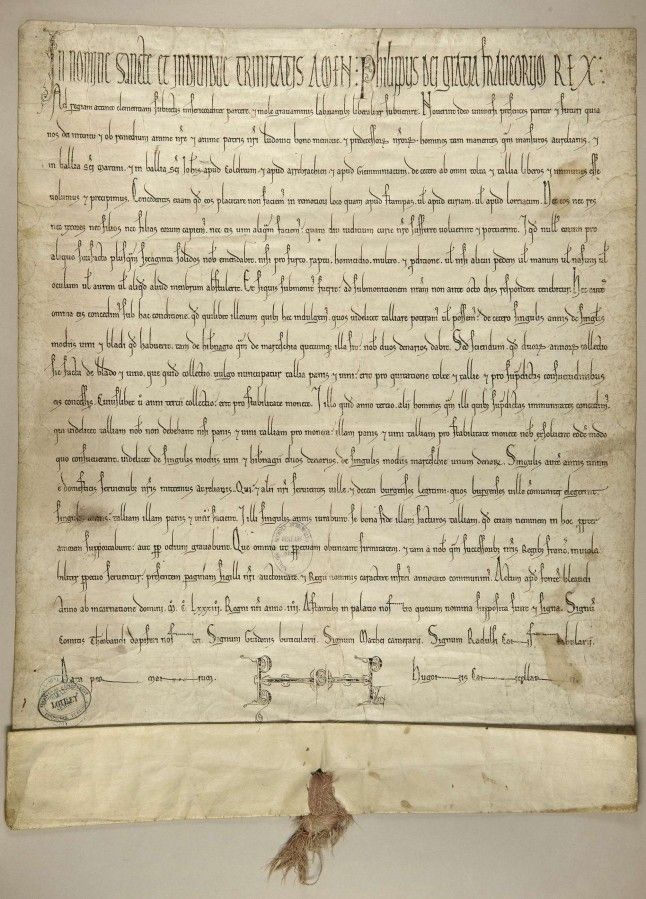 In nomine sancte et individue trinitatis amen : Philippus dei gratia francorum REX :
Ad regiam attinet clementiam subiectis misericorditer parcere, et mole gravaminis laborantibus liberaliter subvenire. Noverint ideo universi presentes pariter et futuri quia
nos dei intuitu et ob remedium anime nr̄e et anime patris nr̄i ludovici bone memorie, et predecessorum nr̄orum. homines tam manentes qm̄ mansuros aurelianis, et
in ballia sc̄i martini, et in ballia sc̄i Joh̄is apud et apud et apud de cetero ab omni tolta et tallia liberos et immunes esse
volumus et precipimus. Concedentes etiam qd̄ eos placitare non faciem̄ in remotiori loco quam apud stampas, ul̄ apud ul̄ apud lorriacum. Nec eos nec res
nec uxores nec filios nec filias eorum capiem̄, nec eis vim aliqm̄ faciem̄, quam diu iudicium curie nr̄e sufferre voluerint et potuerint. qd̄ nullus eorum pro
aliquo forifacto plusqm̄ sexaginta solidos nob̄ emendabit. nisi pro furto. raptu. homicidio. multro. et ul̄ nisi alicui pedem ul̄ manum ul̄ nasum ul̄
oculum ul̄ aurem ul̄ aliqd̄ aliud membrum abstulerit. Et siquis submonitus fuerit: ad submonitionem nr̄am non ante octo dies respondere tenebitur. Hec autem
omnia eis concedim̄ sub hac conditione. qd̄ quilibet illorum quib; hec indulgem̄, quos videlicet talliare poteram̄ ul̄ possem̄: de cetero singulis annis de singulis
modiis vini et bladi qd̄ habuerit. tam de hibnagio qm̄ de marceschia nob̄ duos denarios dabit. Sed sciendum qd̄ duorum annorum collectio
sic facta de blado et vino, que quidē collectio vulgo nuncupatur tallia panis et vini: erit pro quitatione tolte et tallie et pro supradictis consuetudinibus
eis concessis. Cuiuslibet ū anni tertii collectio: erit pro stabilitate monete. I illo quidē anno tertio. alii homines qm̄ illi quib; supradictas immunitates concedim̄
qui videlicet talliam nob̄ non debebant nisi panis et vini talliam pro moneta: illam panis et vini talliam pro stabilitate monete nob̄ exsolvent eodē modo
quo consueverant. videlicet de singulis modiis vini et hibnagii duos denarios. de singulis modiis marceschie unum denar. Singulis autē annis unum
e domesticis servientib; nr̄is mittemus aurelianis. Qui et alii nr̄i servientes ville, et decem burgenses legitimi quos burgenses ville communiter elegerint.
singulis annis talliam illam panis et vini facient. I illi singulis annis iurabunt se bona fide illam facturos talliam. qd̄ etiam neminem in hoc propter
amorem supportabunt: aut pp̄ odium gravabunt. Que omnia ut ppetuam obtineant firmitatem, et tam a nob̄ qm̄ successorib; nr̄is Regib; franc̄. inviola
biliter ppetuo serventur: presentem paginam sigilli nr̄i auctoritate, et Regii nominis caractere inferi annotato communim̄. Actum apd̄ fontē bleaudi
Anno ab incarnatione domini. M̄. C̄. Lxxxiii. Regni nr̄i anno. iiii. Astantib; in palatio nostro quorum nomina supposita sunt et signa. Signū
comitis Theobaudi dapiferi nostri. Signum Guidonis buticularii. Signum Mathei camerarii. Signum Radulfi constabularii.
Data per manum Hugonis Cancellarii
LOIRET